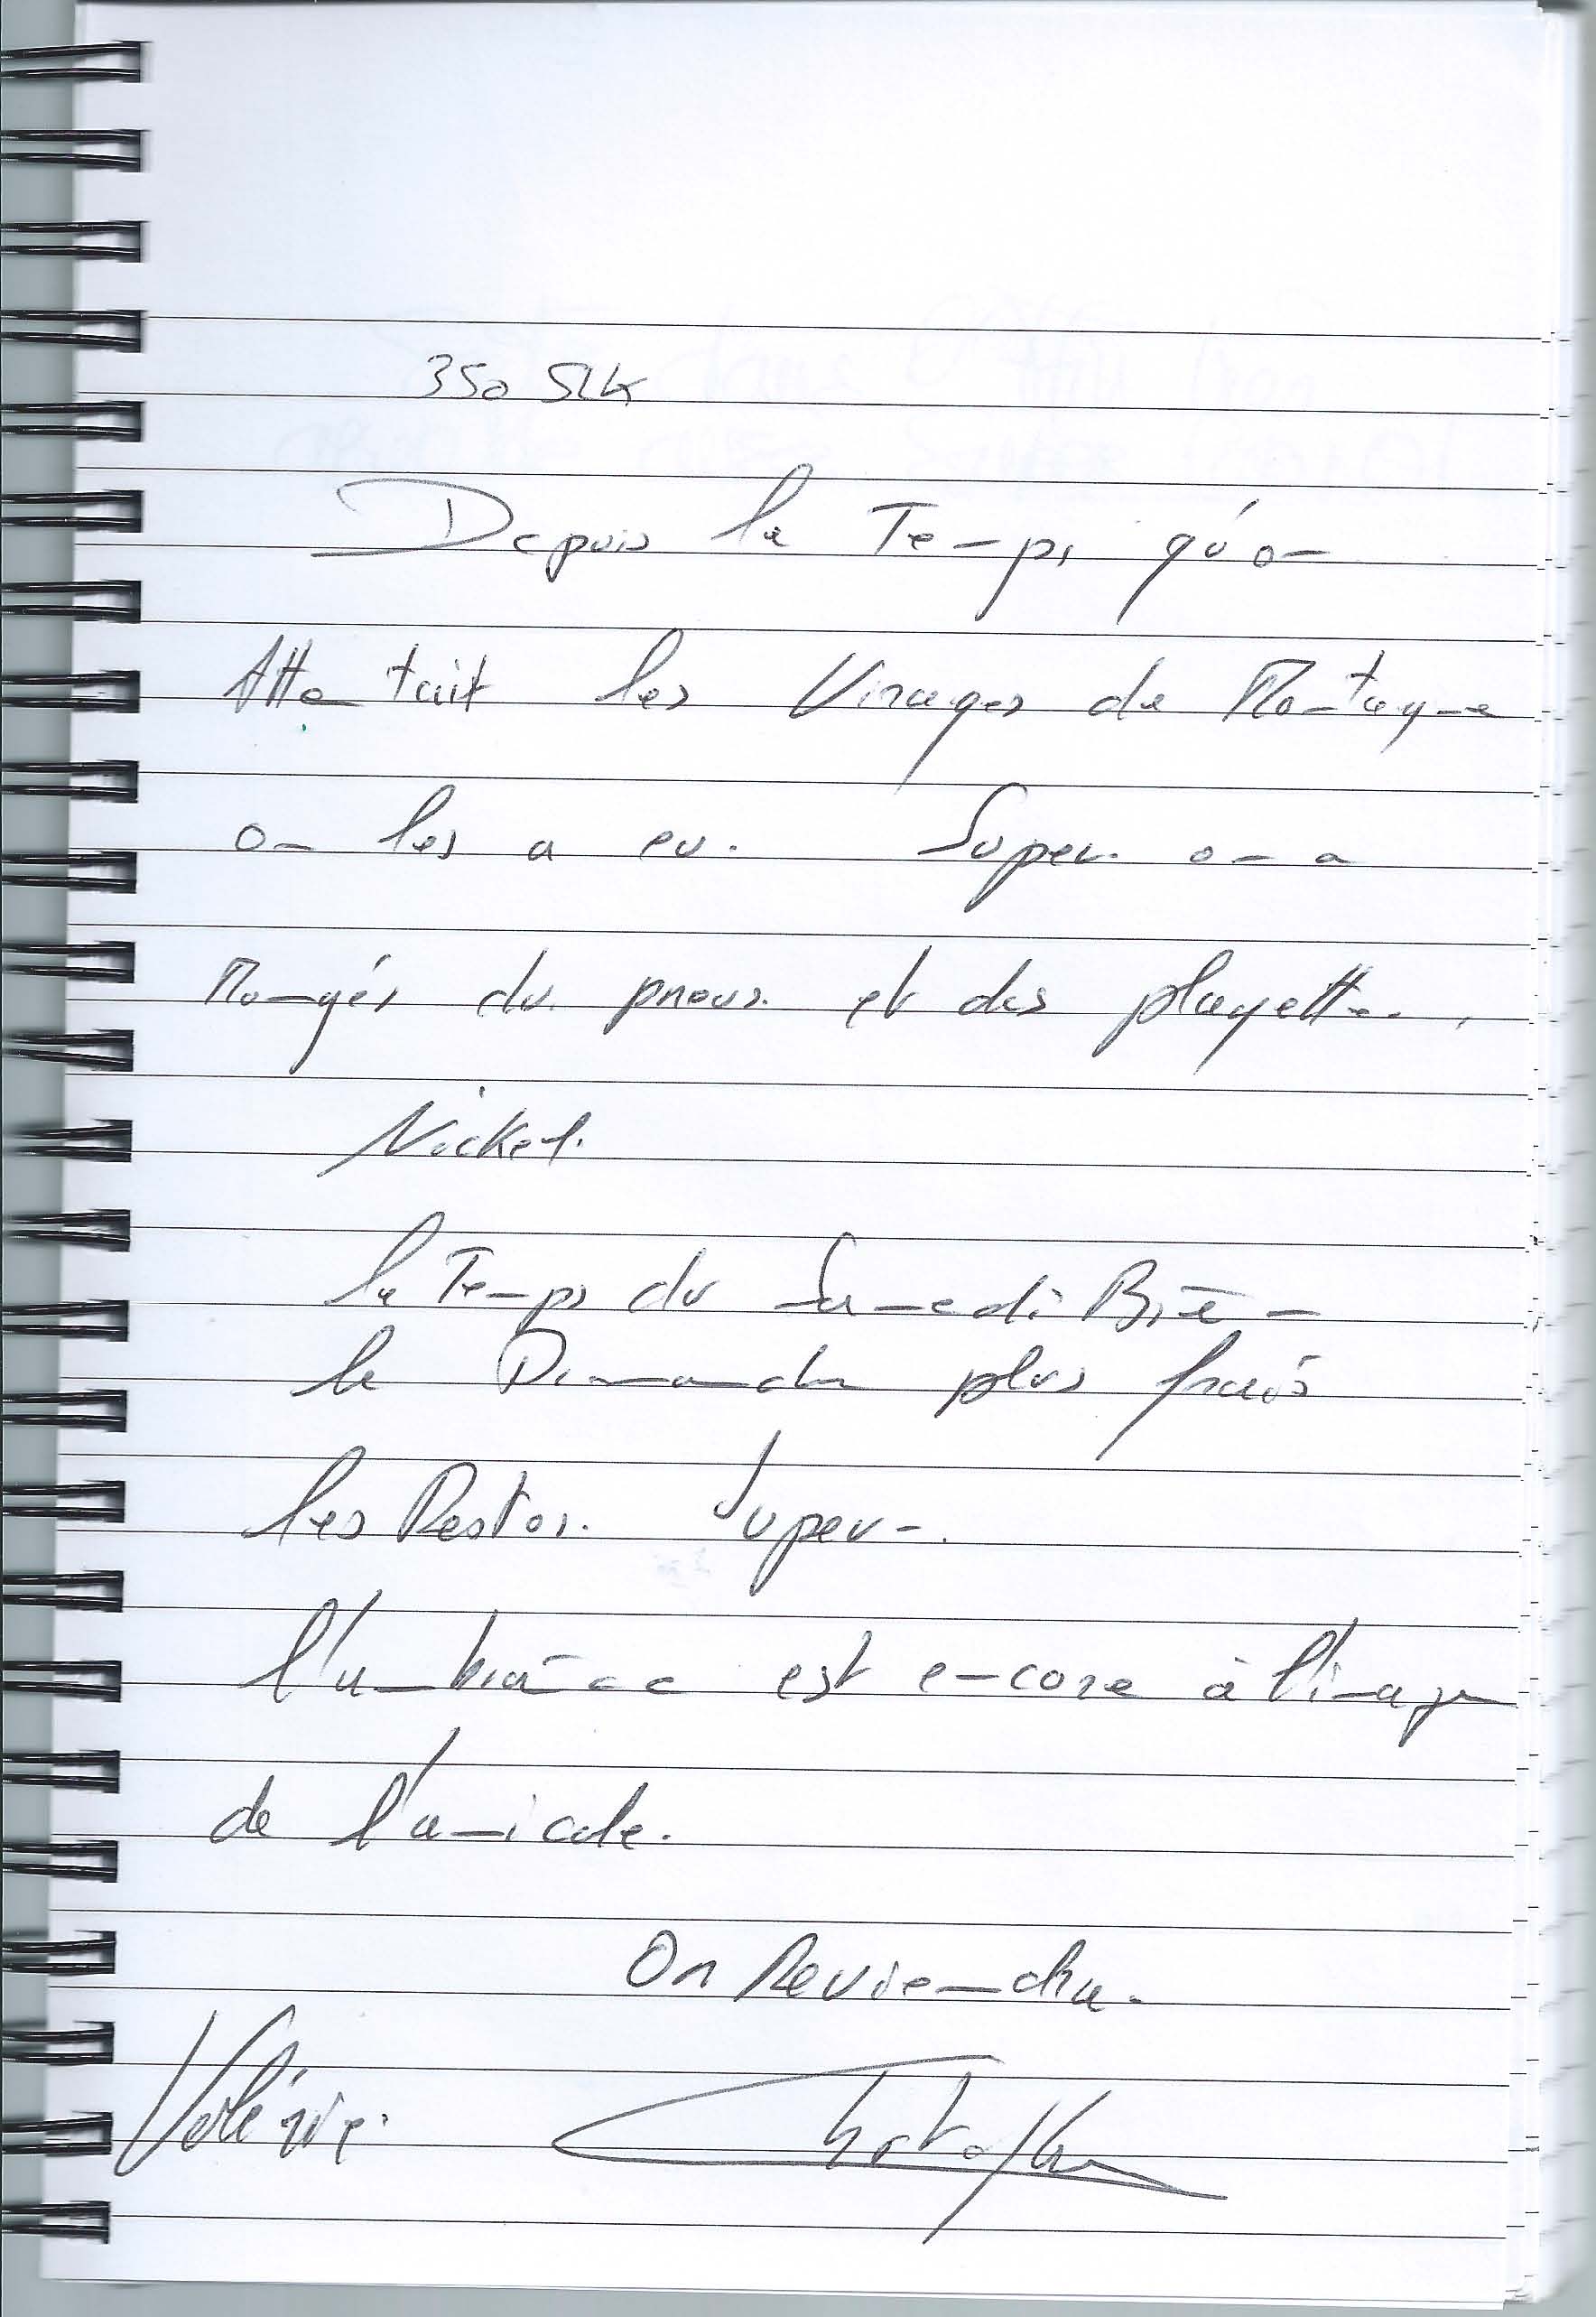 350 SLK
Depuis le Temps qu'on
Attentait les Virages de Montagne
on les a eu. Super. on a
Mangés du pneus. et des plaquettes.
Nickel.
le Temps du Samedi Bien
le Dimanche plus frais
les Restos. Super.
l'ambiance est encore à l'image
de l'amicale.
On Reviendra.
Valérie. Christophe